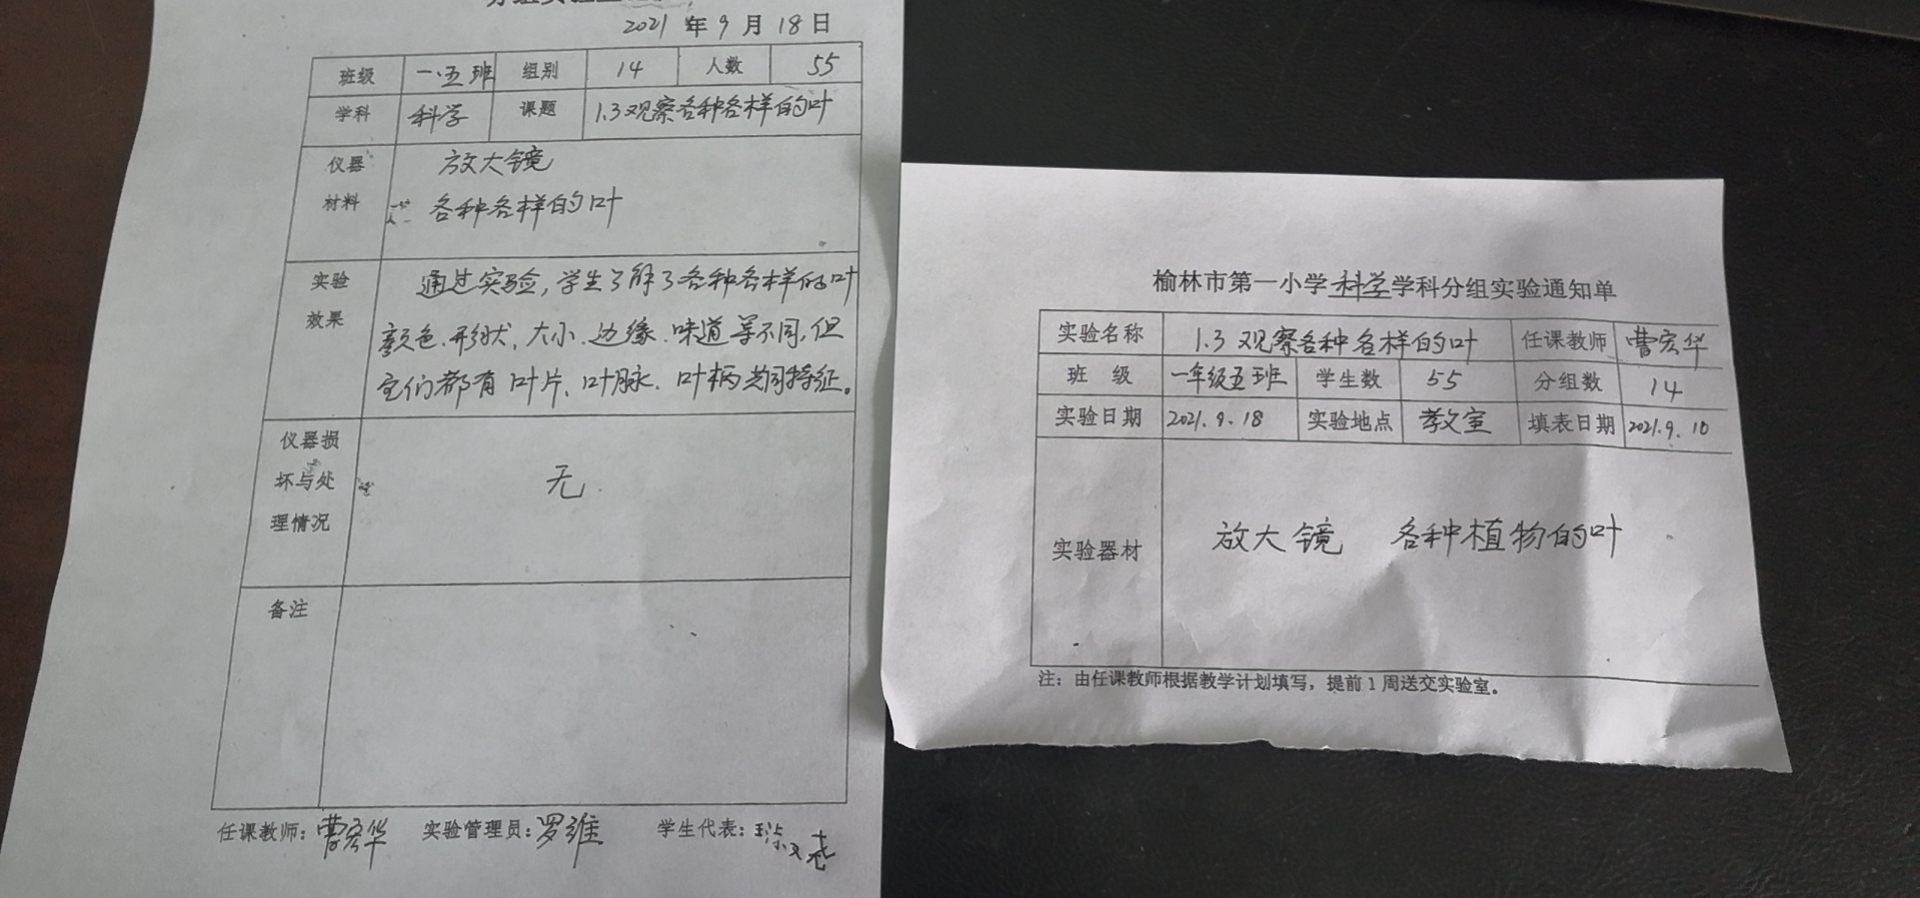 2021 年 9 月 18 日
班级 一.五班 组别 14 人数 55
学科 科学 课题 1.3观察各种各样的叶
仪器
材料
放大镜
各种各样的叶
实验
效果
通过实验,学生了解了各种各样的叶
颜色、形状、大小、边缘、味道等不同,但
它们都有叶片、叶脉、叶柄共同特征。
仪器损
坏与处
理情况
无
备注
任课教师:曹宏华 实验管理员:罗维 学生代表:
榆林市第一小学科学学科分组实验通知单
实验名称 1.3 观察各种各样的叶 任课教师 曹宏华
班 级 一年级五班 学生数 55 分组数 14
实验日期 2021.9.18 实验地点 教室 填表日期 2021.9.10
实验器材 放大镜 各种植物的叶
注:由任课教师根据教学计划填写,提前1周送交实验室。